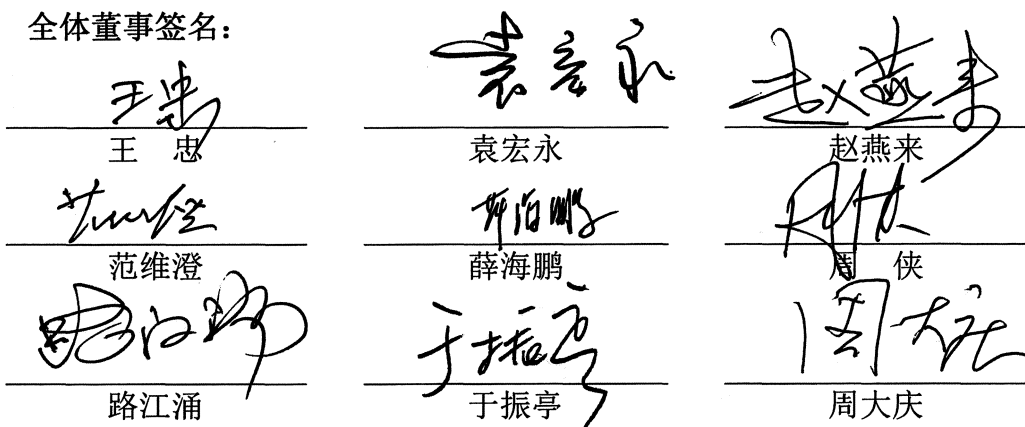 全体董事签名：
王忠 袁宏永 赵燕来
王 忠 袁宏永 赵燕来
范维澄 薛海鹏 周侠
范维澄 薛海鹏 周 侠
路江涌 于振亭 周大庆
路江涌 于振亭 周大庆